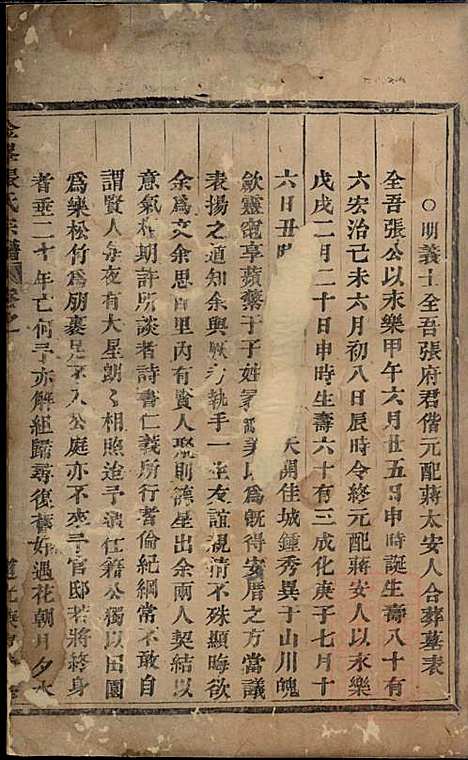 ○明義士全吾張府君偕元配蔣太安人合葬墓表
全吾張公以永樂甲午六月廿五日申時誕生壽八十有
六宏治己未六月初八日辰時令終元配蔣安人以永樂
戊戌二月二十日申時生壽六十有三成化庚子七月十
六日丑時 天開佳城鍾秀異于山川魄
歛靈窀享蘋蘩于子姓 美以爲慨得安厝之方當議
表揚之道知余與 執手一生友誼視淸不殊顯晦欲
余爲文余思百里內有賢人聚則德星出余兩人契結以
意氣相期許所談者詩書仁義所行者倫紀綱常不敢自
謂賢人每夜有大星朗朗相照迨予濺仕籍公獨以田園
爲樂松竹爲朋裹足不入公庭亦不來予官邸若將終身
者垂二十年亡何予亦解組歸尋復舊好遇花朝月夕水
張氏宗譜 卷之